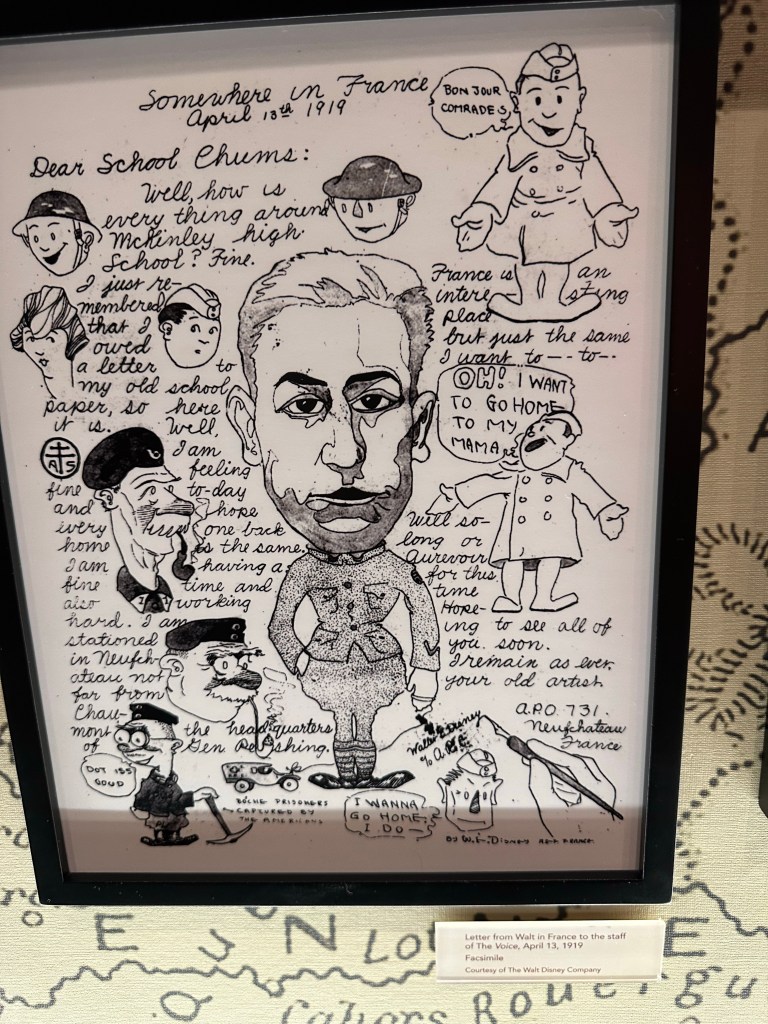 Somewhere in France
April 13th 1919
BON JOUR
COMRADES
Dear School Chums:
Well, how is
every thing around
McKinley high
School? Fine.
I just re-
membered
that I
owed
a letter to
my old school
paper, so here
it is. Well,
I am
feeling
fine to-day
and hope
every one back
home is the same.
I am having a
fine time and
also working
hard. I am
stationed
in Neufch-
ateau not
far from
Chau-
mont the headquarters
of Gen Pershing.
A S
DOT ISS
GOUD
BOCHE PRISONERS
CAPTURED BY
THE AMERICANS
France is an
interesting
place
but just the same
I want to --- to--
OH! I WANT
TO GO HOME
TO MY
MAMA
Well so-
long or
Aurevoir
for this
time
Hope-
ing to see all of
you soon.
I remain as ever
your old artist
Walter Disney
A.P.O. 731.
Neufchateau
France
I WANNA
GO HOME,
I DO—
BY W.E. DISNEY
E S N Lot E
Cahors Rouergu
Letter from Walt in France to the staff
of The Voice, April 13, 1919
Facsimile
Courtesy of The Walt Disney Company